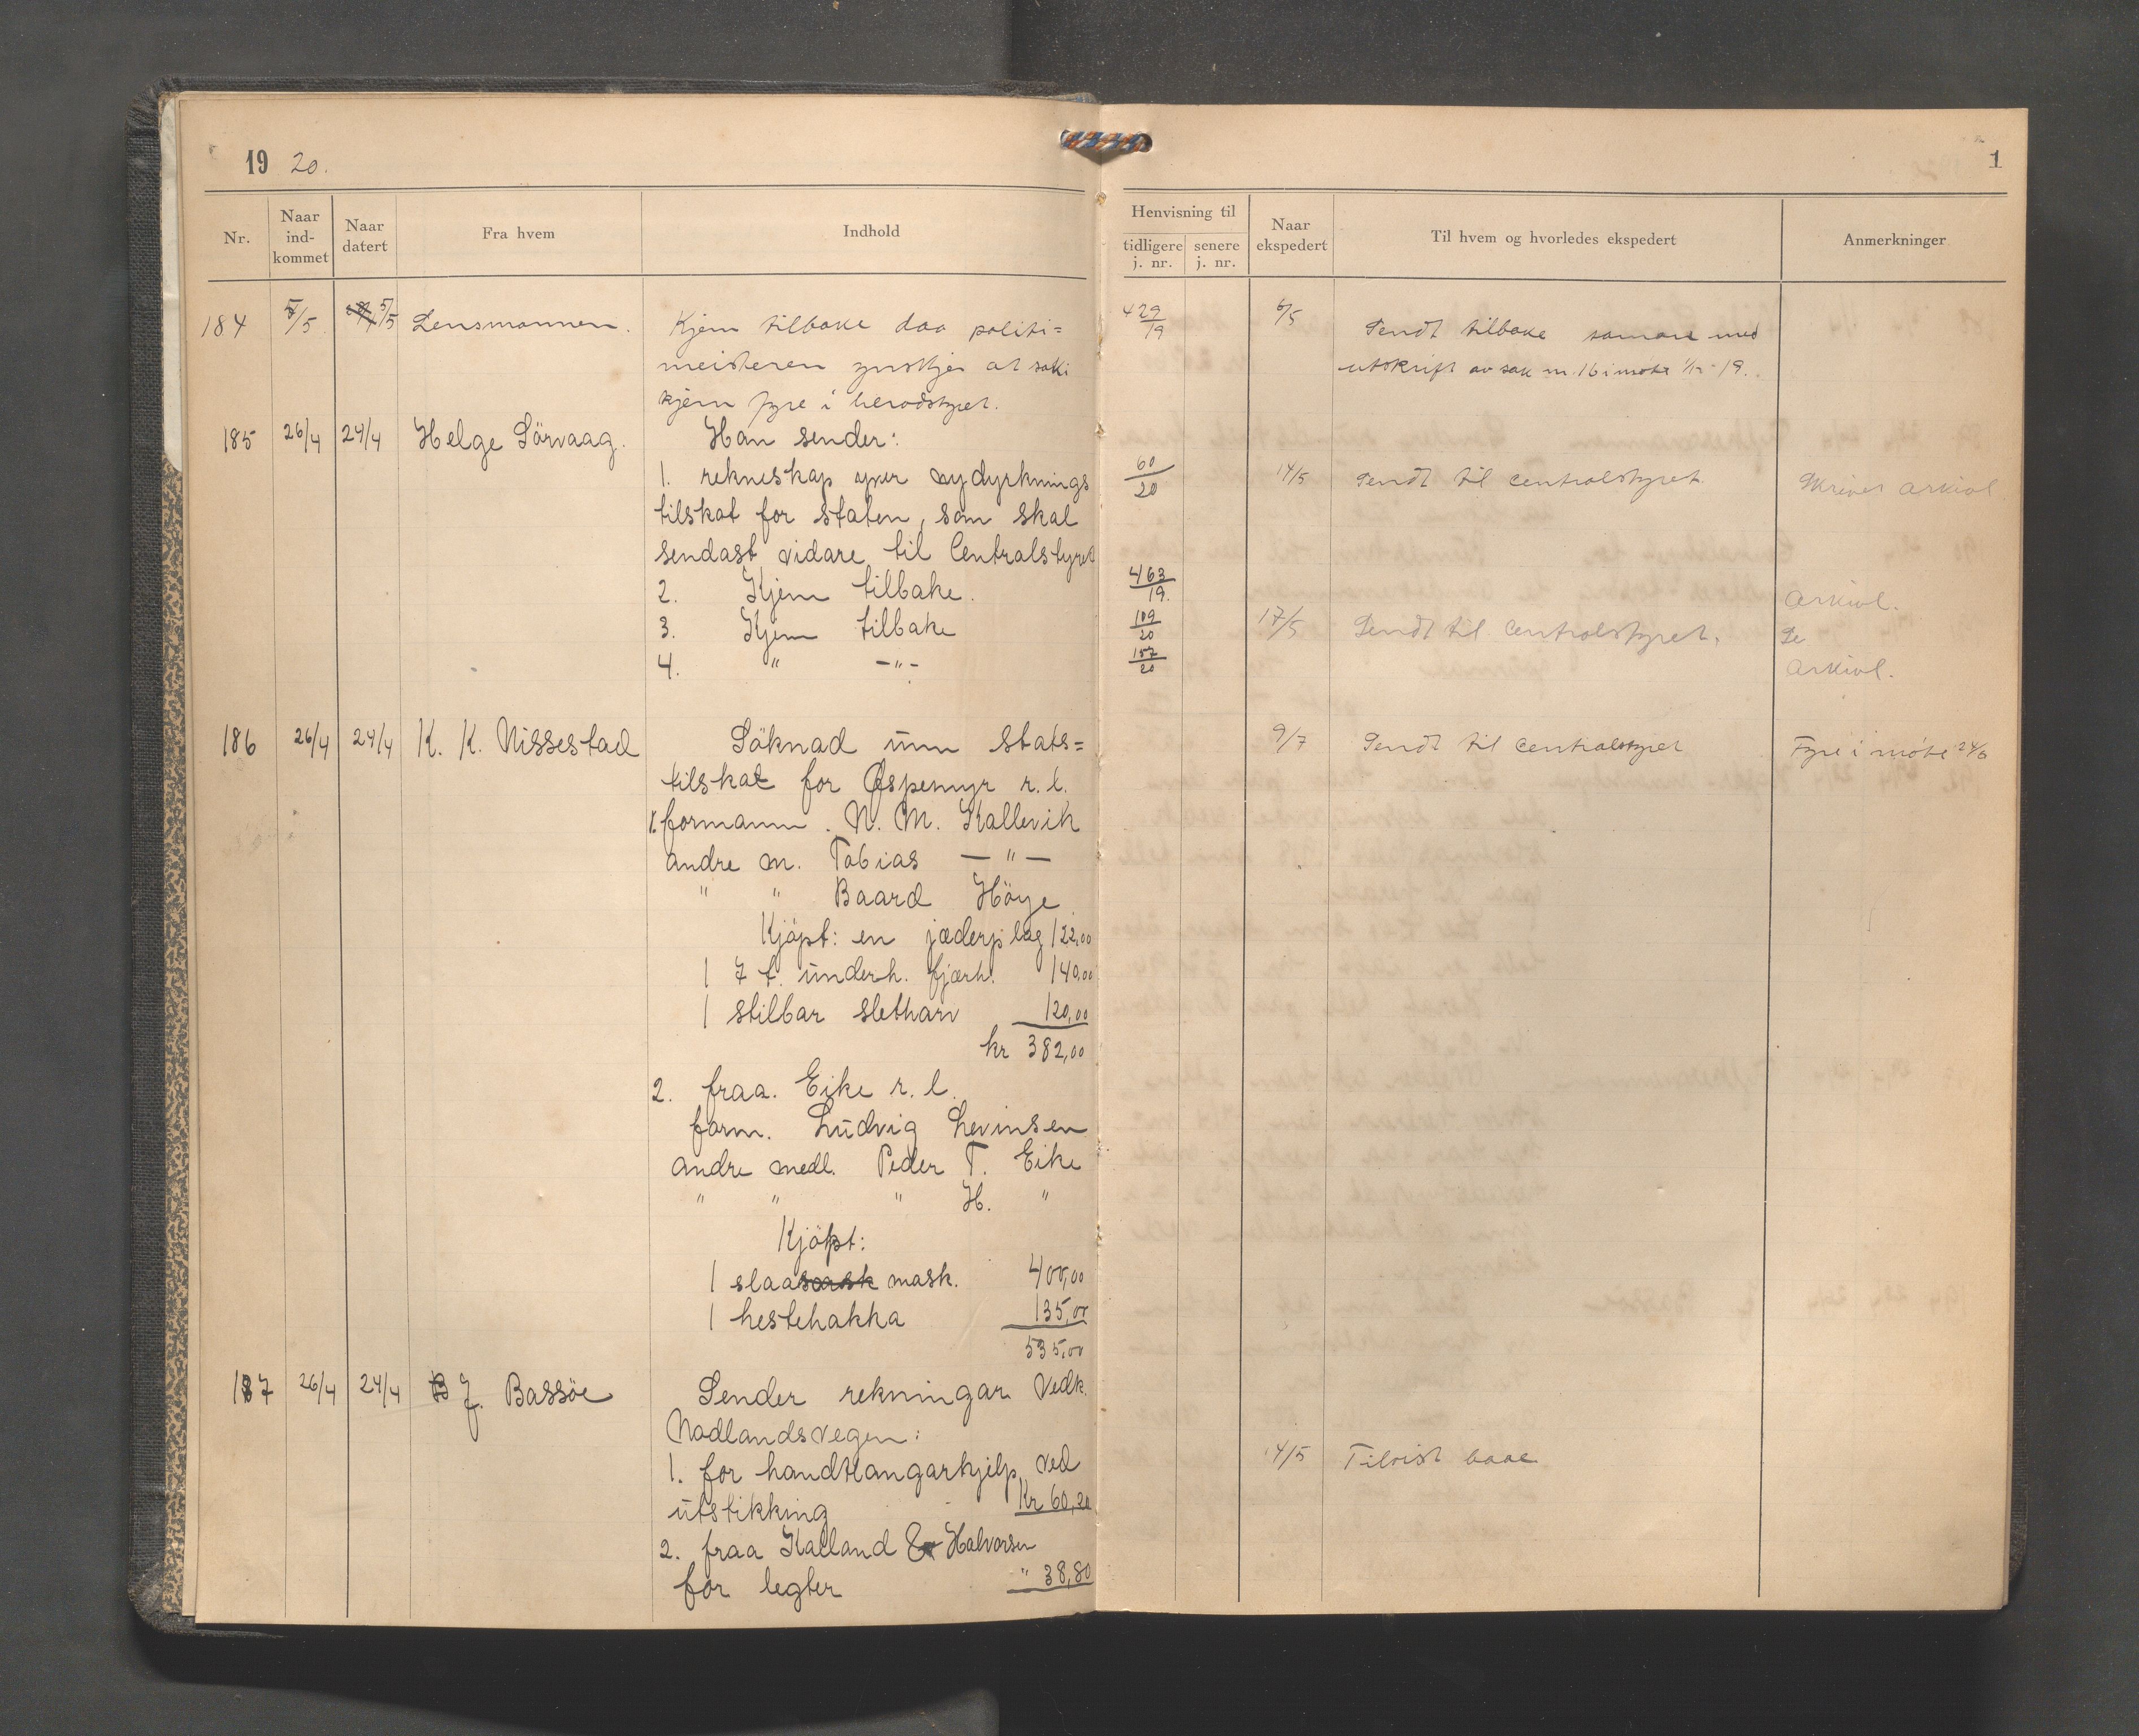 19 20.
Nr.
Naar ind- kommet
Naar datert
Fra hvem
Indhold
184 5/5 5/5 Lensmannen. Kjem tilbake daa politi=
meisteren ynskjer at saki
kjem fyre i heradstyret.
185 26/4 24/4 Helge Sörvaag. Han sender:
1. rekneskap yver nydyrknings
tilskot for staten, som skal
sendast vidare til Centralstyret
2. Kjem tilbake.
3. Kjem tilbake
4. " -"-
186 26/4 24/4 K. K. Nissestad Söknad um stats=
tilskot for Ospemyr r. l.
1. formann. N. M. Kallevik
andre m. Tobias — " —
" " Baard Höye
Kjöpt: en jæderplog 122,00
1 7 t. underh. fjærh. 140,00
1 stilbar sletharv 120,00
kr 382,00
2. fraa. Eike r. l.
form. Ludvig Levinsen
andre medl. Peder T. Eike
" " " H. "
Kjöpt:
1 slaa mask. 400,00
1 hestehakka 135,00
535,00
187 26/4 24/4 J. Bassöe Sender rekningar vedk.
Nodlandsvegen:
1. for handtlangarhjelp ved
utstikking Kr 60,20
2. fraa Kalland & Halvorsen
for legter " 38,80
1
Henvisning til
tidligere j. nr.
senere j. nr.
Naar ekspedert
Til hvem og hvorledes ekspedert
Anmerkninger
429/19 6/5 Sendt tilbake samare med
utskrift av sak nr. 16 i møte 1/12-19.
60/20 14/5 Sendt til centralstyret. Skrives arkivl.
463/19. arkivl.
109/20 17/5 Sendt til centralstyret. Se
157/20 arkivl.
9/7 Sendt til centralstyret Fyre i møte 24/6
14/5 Tilvist baae